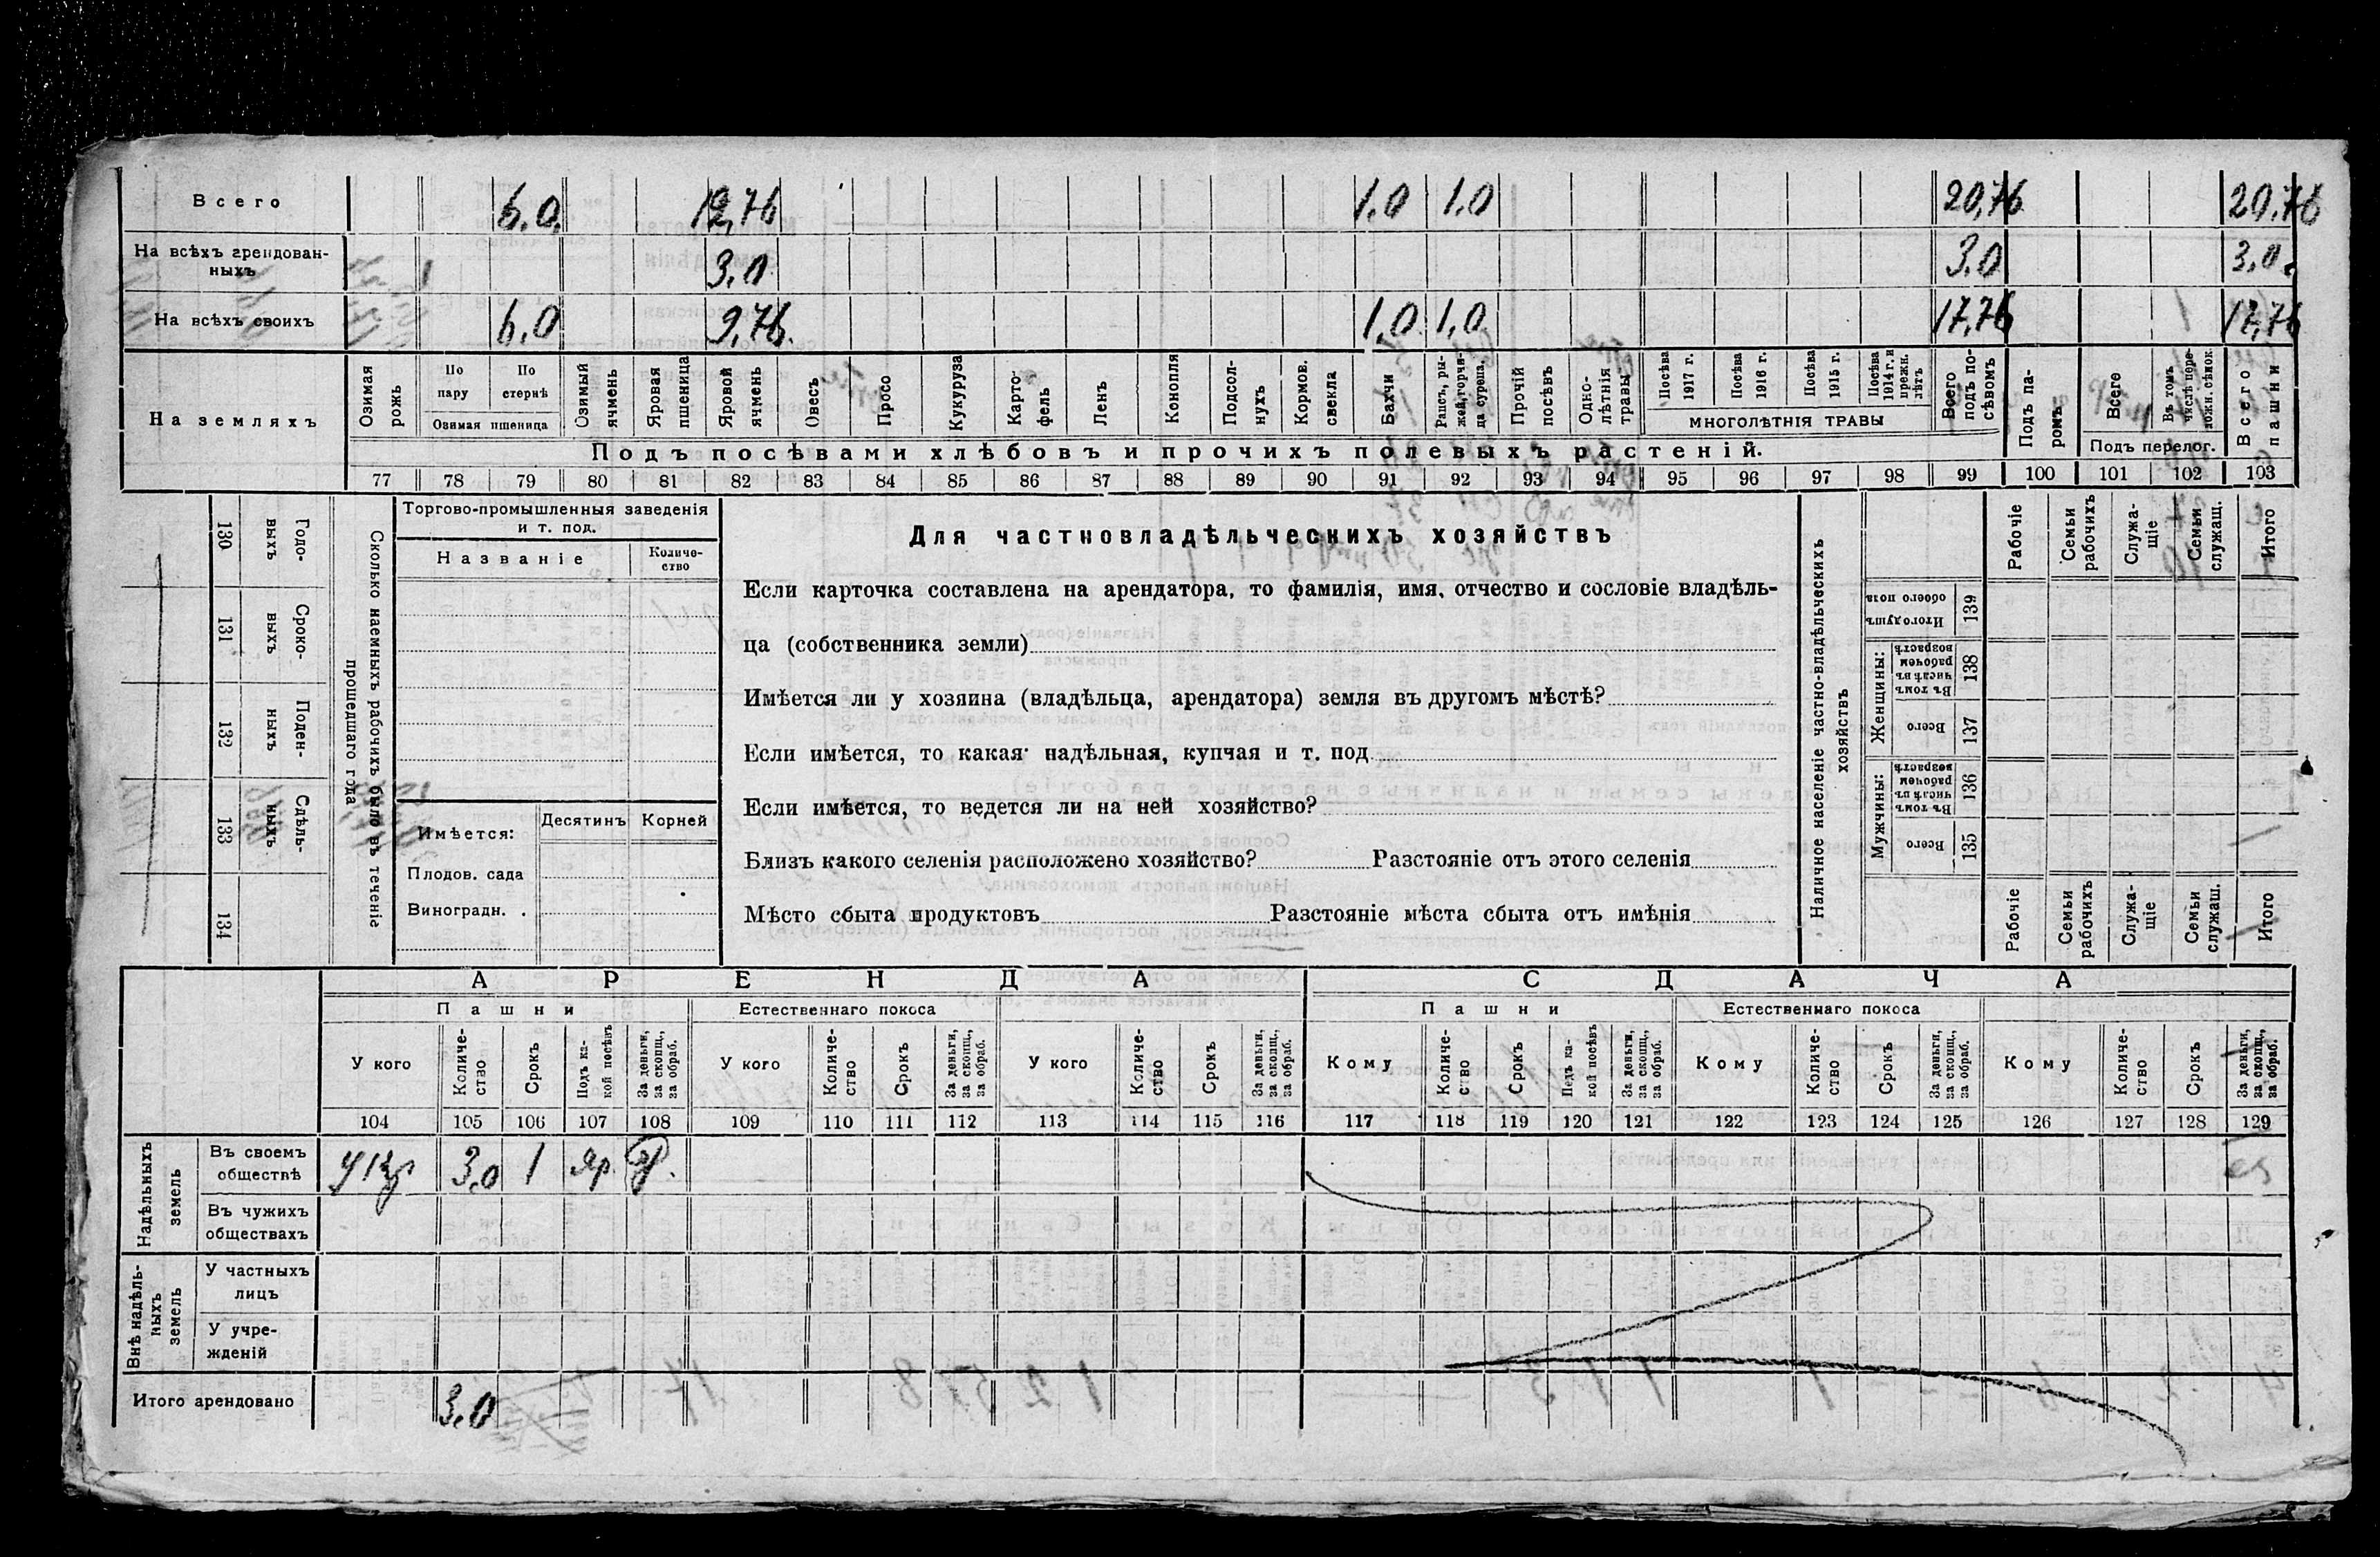 Всего 6.0. 12,76 1.0 1.0 20,76 20,76
На всѣхъ арендован-
ныхъ 3.0 3.0 3,0
На всѣхъ своихъ 6.0 9,76. 1.0 1,0 17,76 17,76
На земляхъ
Озимая рожь
По пару
По стернѣ
Озимая пшеница
Озимый ячмень
Яровая пшеница
Яровой ячмень
Овесъ
Просо
Кукуруза
Карто-
фель
Ленъ
Конопля
Подсол-
нухъ
Кормов.
свекла
Бахчи
Рапсъ, ры-
жей, горчи-
ца сурепа.
Прочій
посѣвъ
Одно-
лѣтнія
травы
Посѣва
1917 г.
Посѣва
1916 г.
Посѣва
1915 г.
Посѣва
1914 г. и
прежн.
лѣтъ
МНОГОЛѢТНІЯ ТРАВЫ
Всего
подъ по-
сѣвомъ
Подъ па-
ромъ
Всего
Въ томъ
числѣ пере-
ложн. сѣнок.
Подъ перелог.
Всего
пашни
Подъ посѣвами хлѣбовъ и прочихъ полевыхъ растеній.
77 78 79 80 81 82 83 84 85 86 87 88 89 90 91 92 93 94 95 96 97 98 99 100 101 102 103
130 Годо-
выхъ
131 Сроко-
выхъ
132 Поден-
ныхъ
133 Сдѣль-
ныхъ
134
Сколько наемныхъ рабочихъ было въ теченіе
прошедшаго года
Торгово-промышленныя заведенія
и т. под.
Названіе
Количе-
ство
Имѣется:
Десятинъ Корней
Плодов. сада
Виноградн.
Для частновладѣльческихъ хозяйствъ
Если карточка составлена на арендатора, то фамилія, имя, отчество и сословіе владѣль-
ца (собственника земли)
Имѣется ли у хозяина (владѣльца, арендатора) земля въ другомъ мѣстѣ?
Если имѣется, то какая: надѣльная, купчая и т. под
Если имѣется, то ведется ли на ней хозяйство?
Близъ какого селенія расположено хозяйство? Разстояніе отъ этого селенія
Мѣсто сбыта продуктовъ Разстояніе мѣста сбыта отъ имѣнія
Наличное населеніе частно-владѣльческихъ
хозяйствъ
Рабочіе
Семьи
рабочихъ
Служа-
щіе
Семьи
служащ.
Итого
Итого душъ
обоего пола
139
Женщины:
Въ томъ
числѣ въ
рабочем
возрастѣ
138
Всего
137
Мужчины:
Въ томъ
числѣ въ
рабочем
возрастѣ
136
Всего
135
Рабочіе
Семьи
рабочихъ
Служа-
щіе
Семьи
служащ.
Итого
АРЕНДА СДАЧА
Пашни Естественнаго покоса Пашни Естественнаго покоса
У кого
Количе-
ство
Срокъ
Подъ ка-
кой посѣвъ
За деньги,
за скопщ.,
за обраб.
У кого
Количе-
ство
Срокъ
За деньги,
за скопщ.,
за обраб.
У кого
Количе-
ство
Срокъ
За деньги,
за скопщ.,
за обраб.
Кому
Количе-
ство
Срокъ
Подъ ка-
кой посѣвъ
За деньги,
за скопщ.,
за обраб.
Кому
Количе-
ство
Срокъ
За деньги,
за скопщ.,
за обраб.
Кому
Количе-
ство
Срокъ
За деньги,
за скопщ.,
за обраб.
104 105 106 107 108 109 110 111 112 113 114 115 116 117 118 119 120 121 122 123 124 125 126 127 128 129
Надѣльныхъ
земель
Въ своемъ
обществѣ 3,0 1 яр.
Въ чужихъ
обществахъ
Внѣ надѣль-
ныхъ
земель
У частныхъ
лицъ
У учре-
жденій
Итого арендовано 3,0